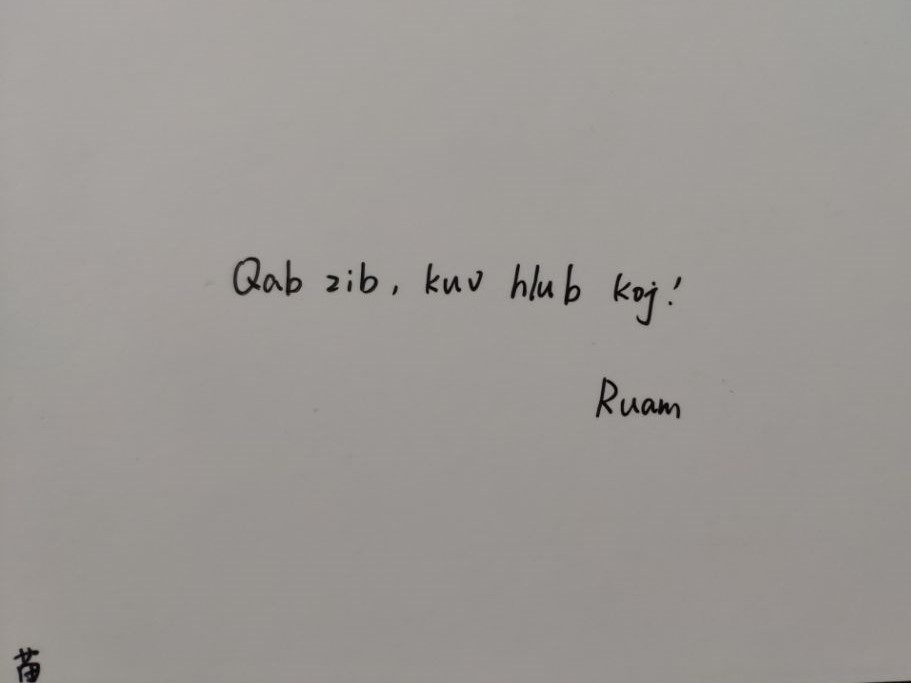 Qab zib, kuv hlub koj!
Ruam
苗